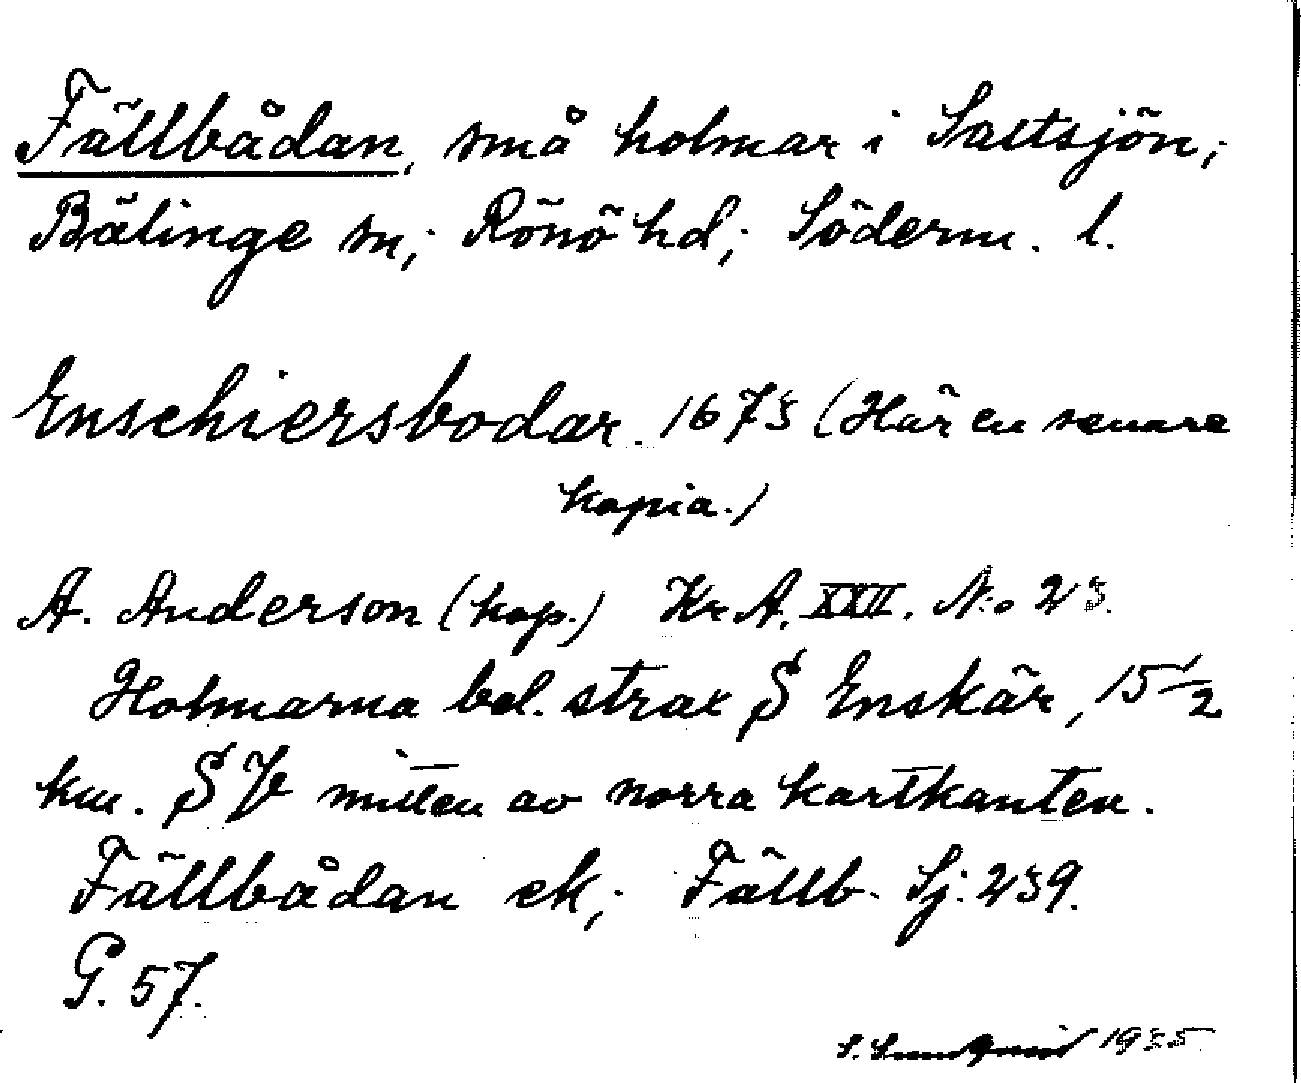 Fällbådan, små holmar i Saltsjön;
Bälinge sn; Rönö hd; Söderm. l.
Enschiersbodar. 1673 (Här en senare
kopia.)
A. Anderson (kop.) Kr. A. XXII. No 23.
Holmarna bel. strax S Enskär, 15 1/2
km. S V mitten av norra kartkanten.
Fällbådan ek; Fällb. Sj. 239.
G. 57.
S. Sundqvist 1935